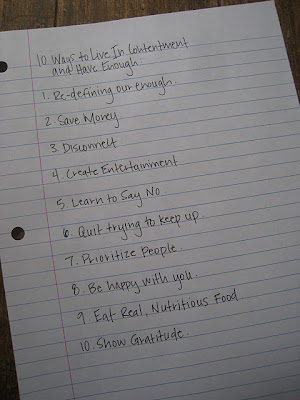 10 Ways to Live In Contentment
and Have Enough
1. Re-defining our enough.
2. Save Money
3. Disconnect
4. Create Entertainment
5. Learn to Say No
6. Quit trying to keep up.
7. Prioritize People.
8. Be happy with you.
9 Eat Real, Nutritious Food.
10. Show Gratitude.